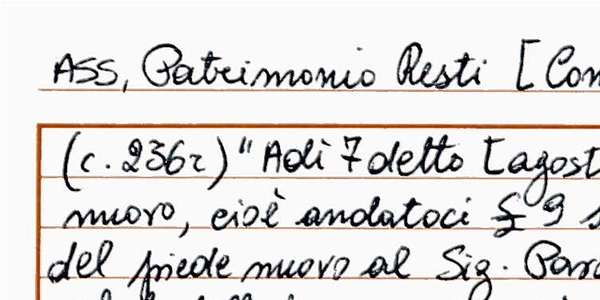 ASS, Patrimonio Resti [Con
(c. 236r) "Adi 7 detto [agost
nuovo, cioè andatoci £ 9 s
del piede nuovo al Sig. Par